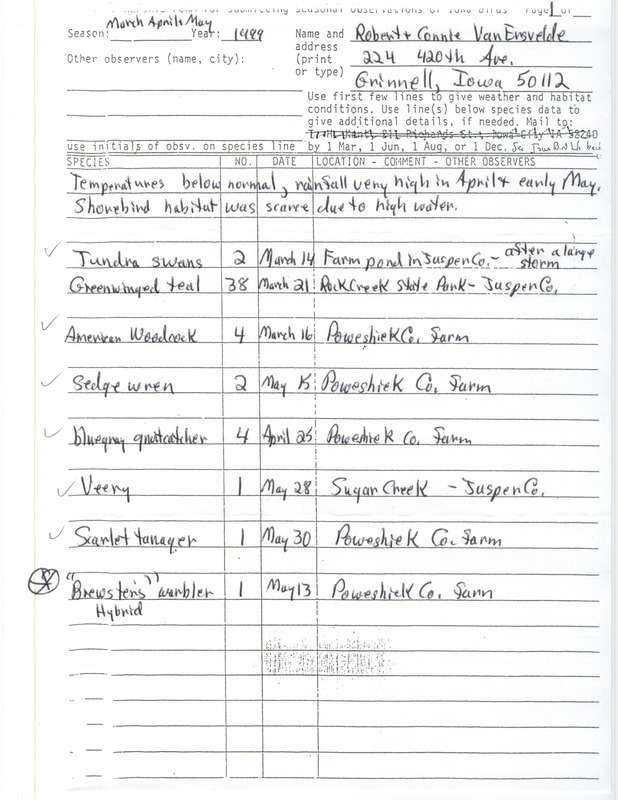 for submitting seasonal observations of Iowa birds Page 1 of
Season: March April & May Year: 1999 Name and Robert & Connie VanErsvelde
address 224 420th Ave.
Other observers (name, city): (print
or type) Grinnell, Iowa 50112
Use first few lines to give weather and habitat
conditions. Use line(s) below species data to
give additional details, if needed. Mail to:
use initials of obsv. on species line by 1 Mar, 1 Jun, 1 Aug, or 1 Dec.
SPECIES NO. DATE LOCATION - COMMENT - OTHER OBSERVERS
Temperatures below normal, rainfall very high in April & early May.
Shorebird habitat was scarce due to high water.
Tundra swans 2 March 14 Farm pond in Jasper Co. - after a large
storm
Greenwinged teal 38 March 21 Rock Creek State Park - Jasper Co.
American Woodcock 4 March 16 Poweshiek Co. farm
Sedge wren 2 May 15 Poweshiek Co. farm
bluegray gnatcatcher 4 April 25 Poweshiek Co. farm
Veery 1 May 28 Sugar Creek - Jasper Co.
Scarlet tanager 1 May 30 Poweshiek Co. farm
"Brewster's" warbler 1 May 13 Poweshiek Co. farm
Hybrid